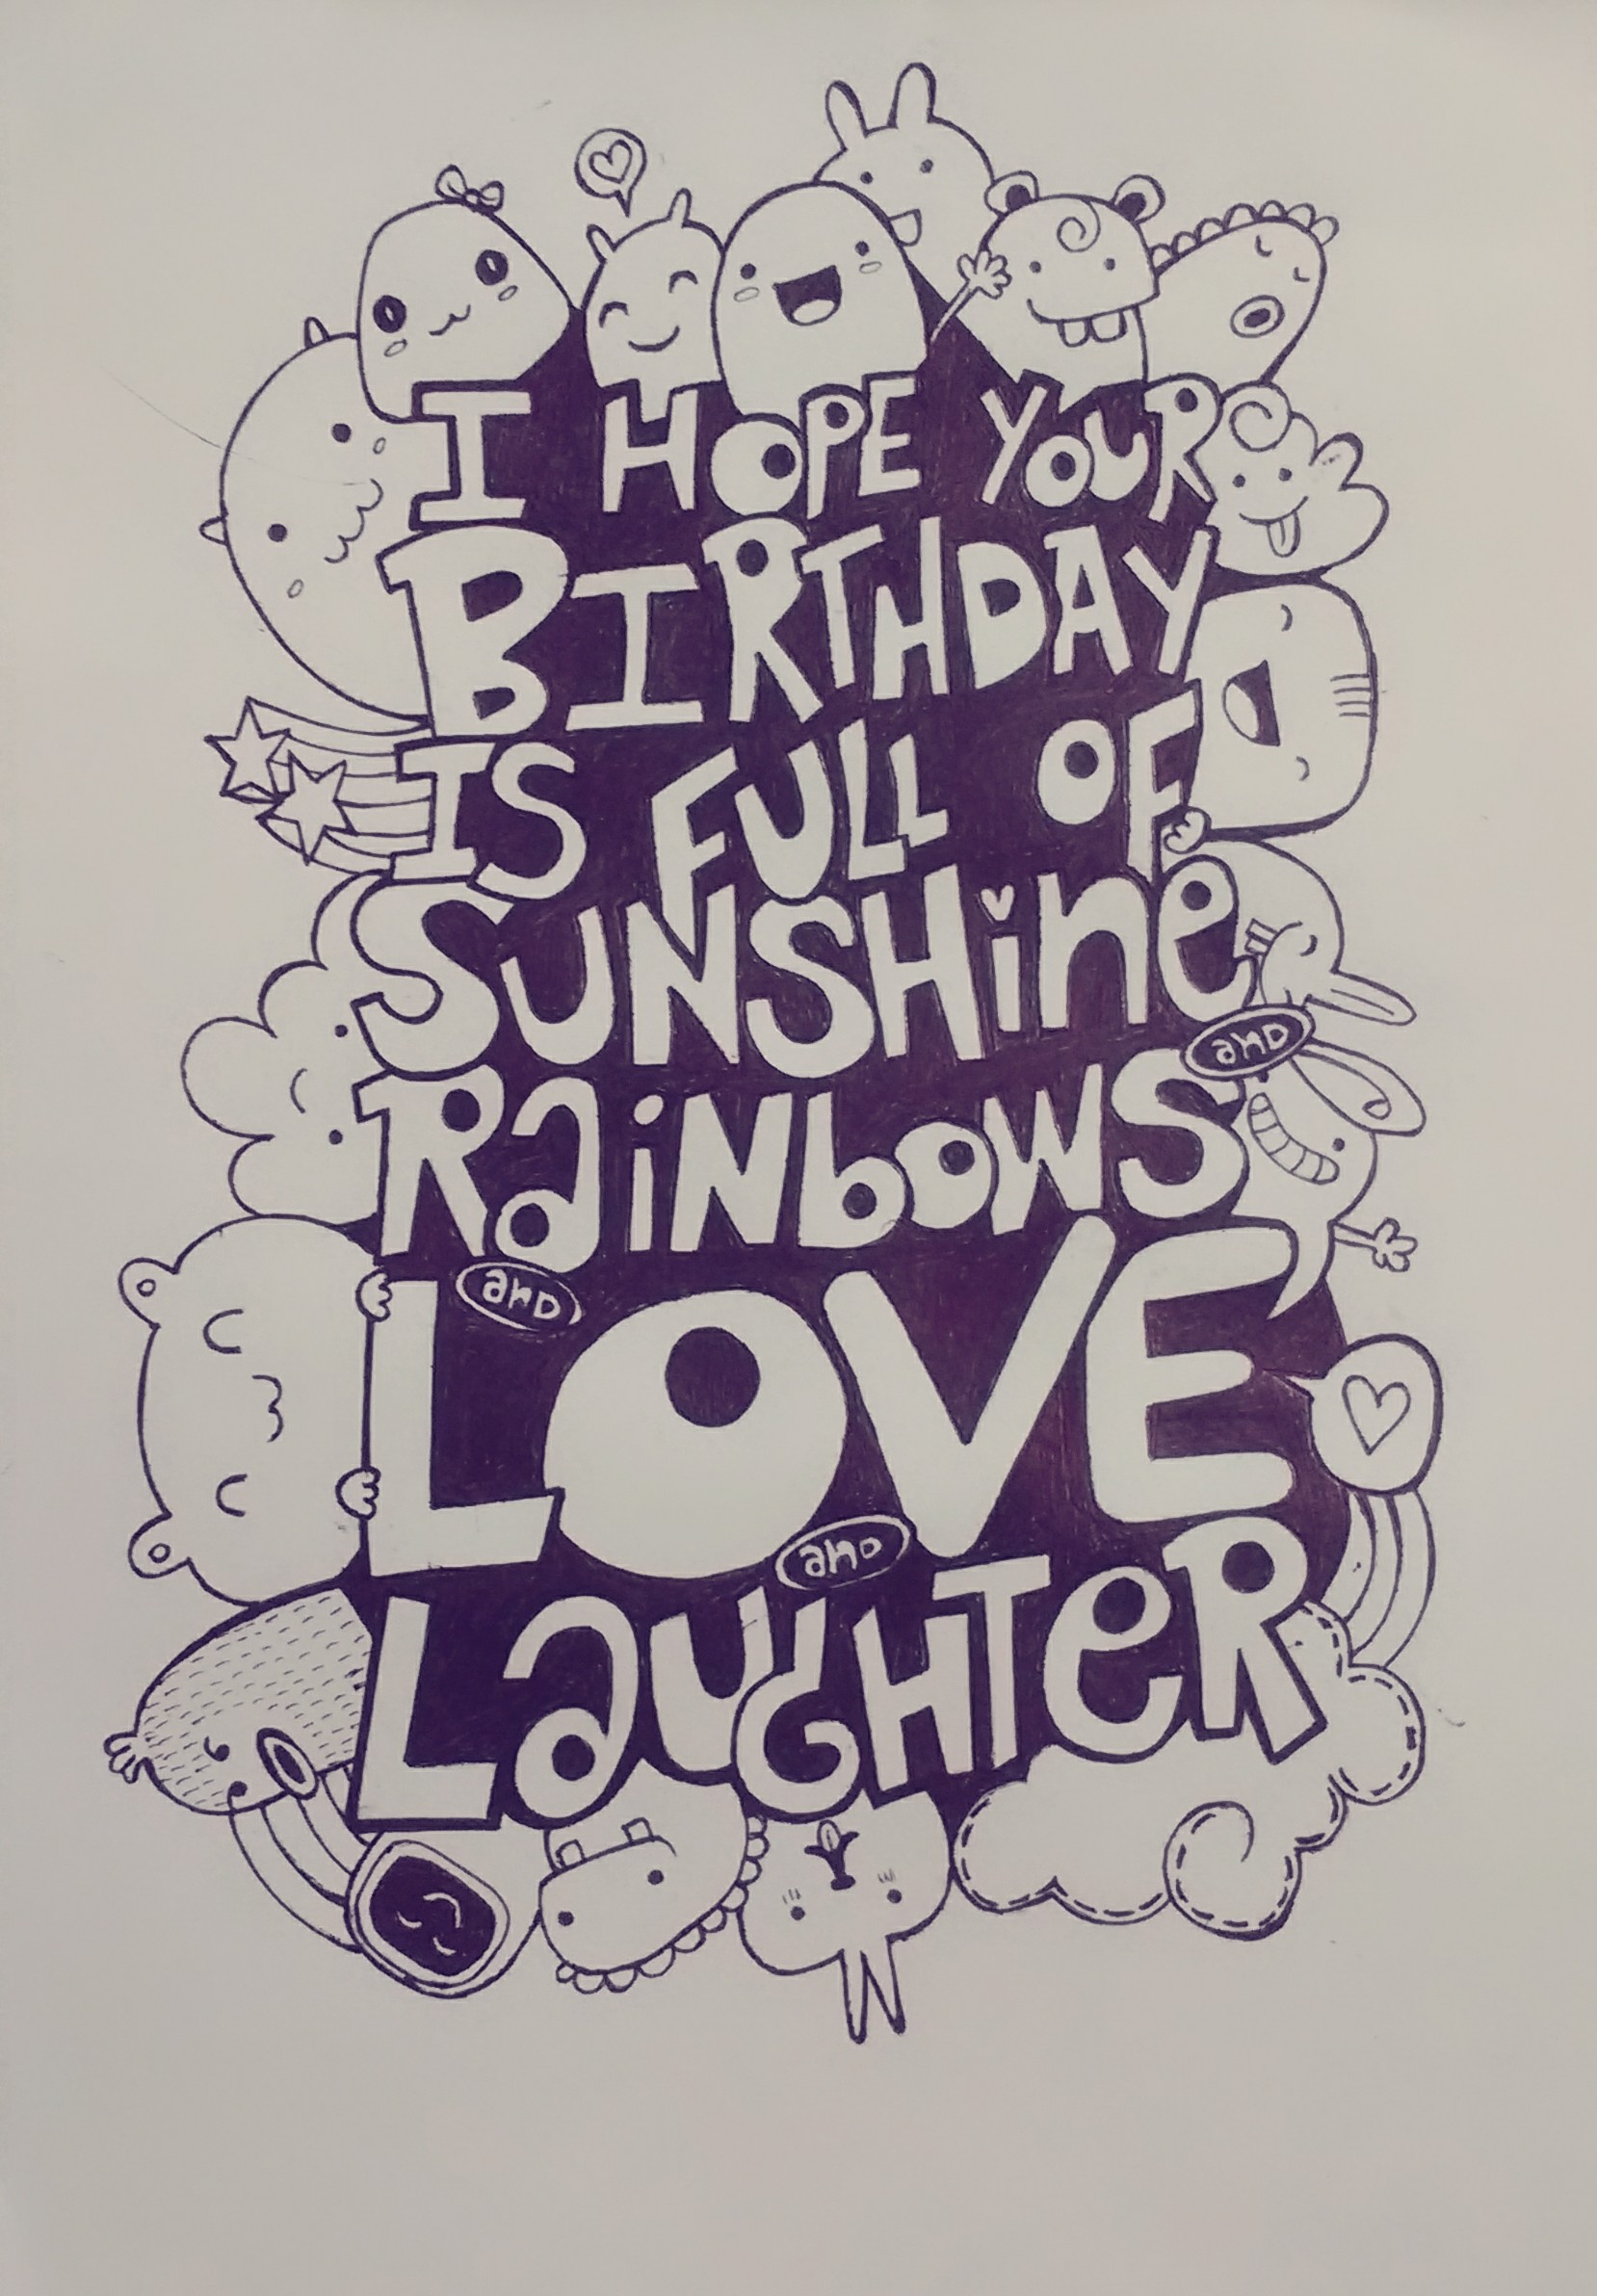 I HOPE YOUR
BIRTHDAY
IS FULL OF
SUNSHine
and
RainbowS
and
LOVE
and
LaUGHTeR